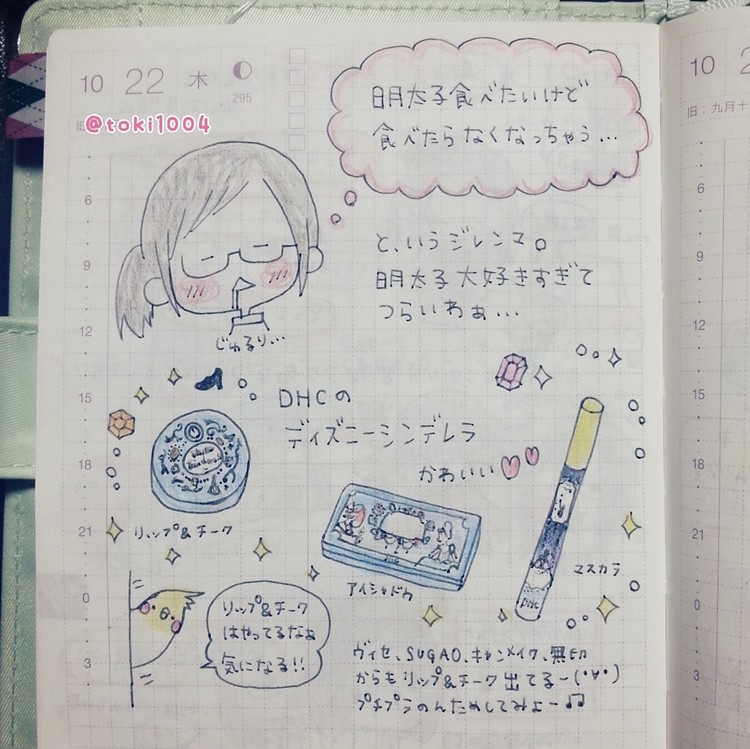 10 22 木
295
@toki1004
明太子食べたいけど
食べたらなくなっちゃう…
と、いうジレンマ。
明太子大好きすぎて
つらいわぁ…
じゅるり…
DHCの
ディズニーシンデレラ
かわいい
リップ&チーク
アイシャドウ
マスカラ
DHC
リップ&チーク
はやってるなぁ
気になる!!
ヴィセ、SUGAO、キャンメイク、無印
からもリップ&チーク出てるー(・∀・)
プチプラのんためしてみよー♫
6
9
12
15
18
21
0
3
10 2
旧:九月十
6
9
12
15
18
21
0
3